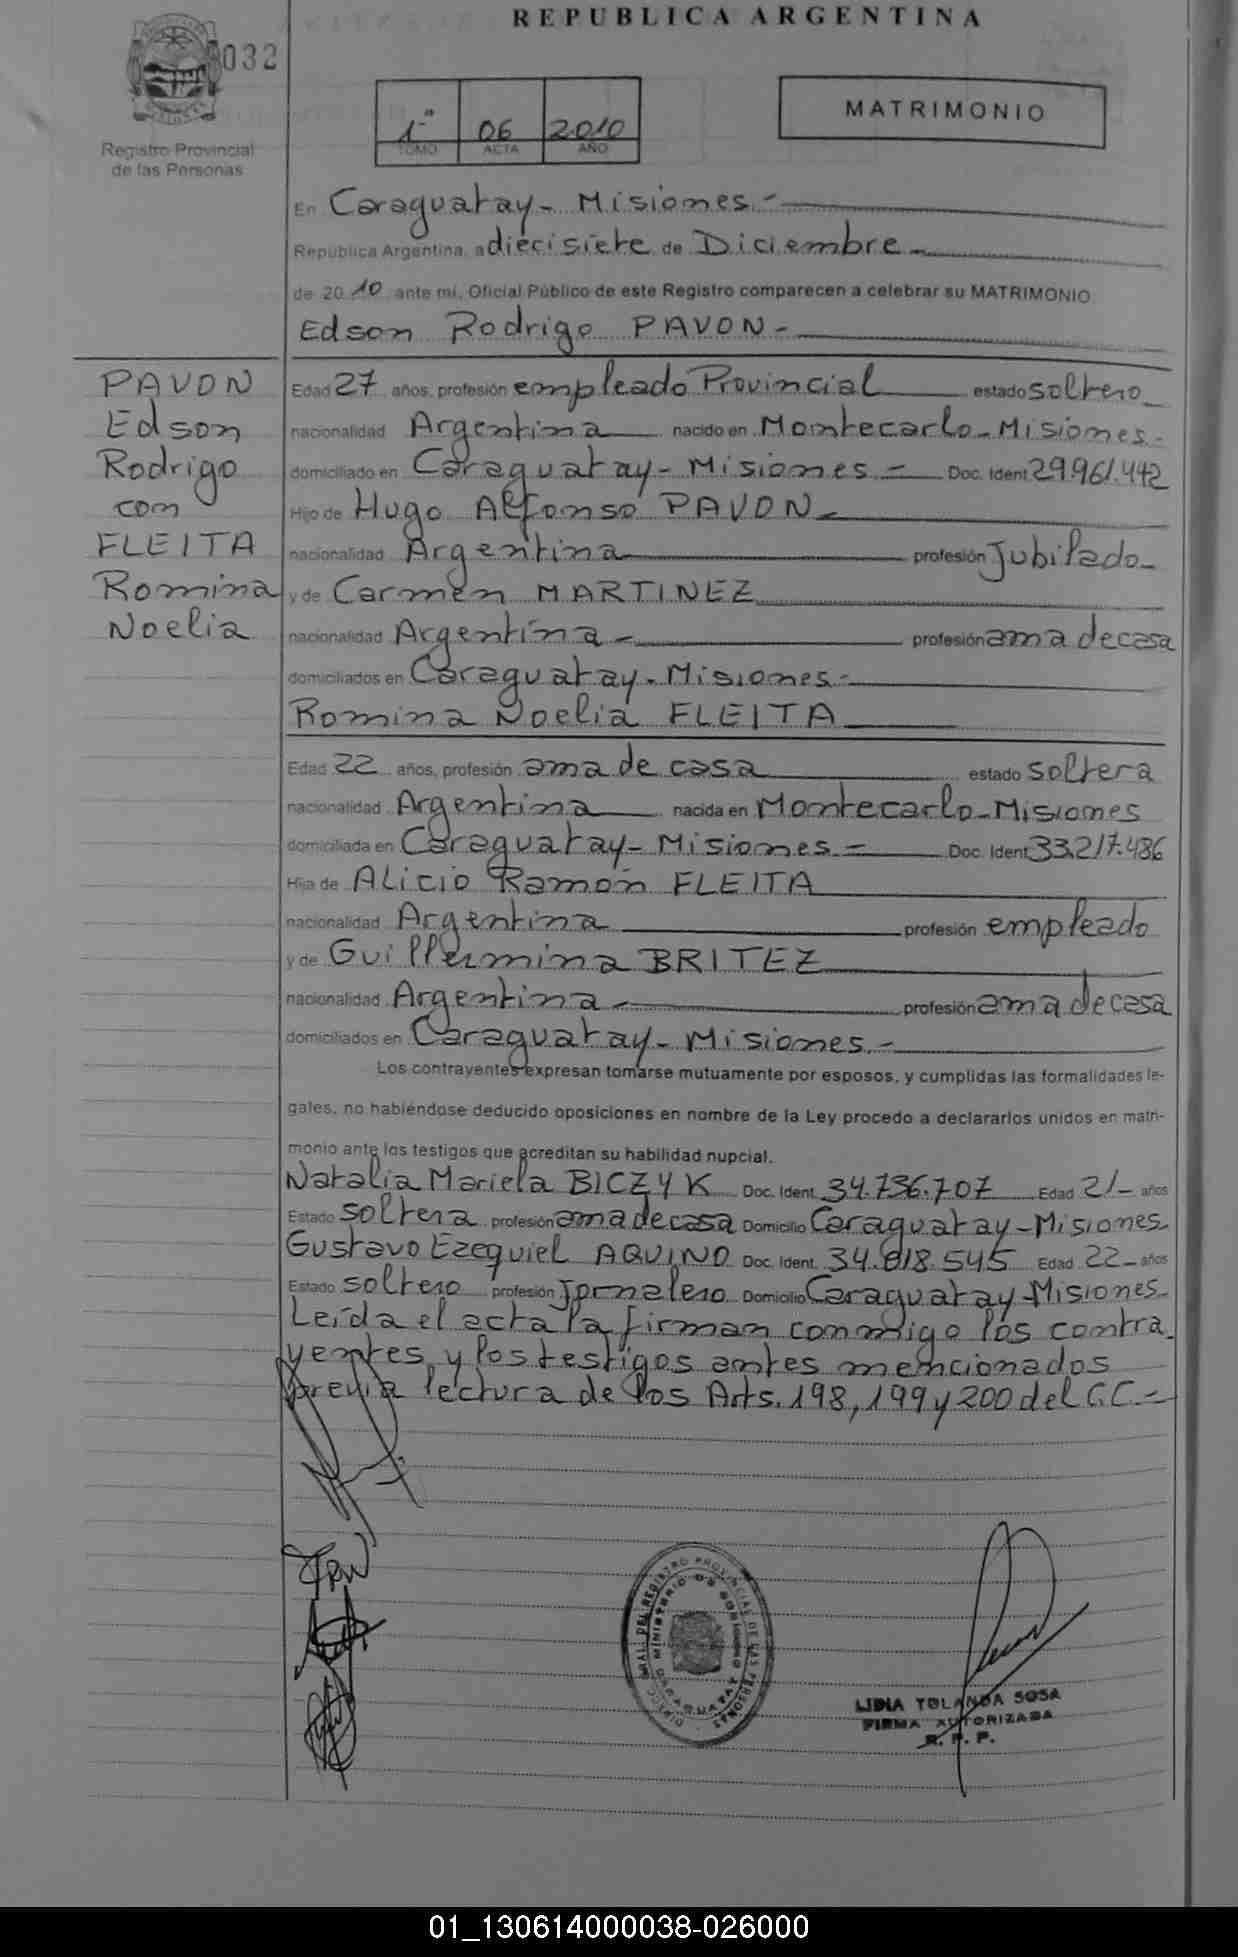 REPUBLICA ARGENTINA
032
Registro Provincial
de las Personas
1º 06 2010
TOMO ACTA AÑO
MATRIMONIO
En Caraguatay - Misiones.-
República Argentina, a diecisiete de Diciembre.-
de 20 10 ante mí, Oficial Público de este Registro comparecen a celebrar su MATRIMONIO
Edson Rodrigo PAVON.-
PAVON
Edson
Rodrigo
con
FLEITA
Romina
Noelia
Edad 27 años, profesión empleado Provincial estado soltero
nacionalidad Argentina nacido en Montecarlo - Misiones.-
domiciliado en Caraguatay - Misiones.- Doc. Ident 29.961.442
Hijo de Hugo Alfonso PAVON.-
nacionalidad Argentina profesión Jubilado.-
y de Carmen MARTINEZ
nacionalidad Argentina.- profesión ama de casa
domiciliados en Caraguatay - Misiones.-
Romina Noelia FLEITA
Edad 22 años, profesión ama de casa estado soltera
nacionalidad Argentina nacida en Montecarlo - Misiones
domiciliada en Caraguatay - Misiones.- Doc. Ident 33.217.486
Hija de Alicio Ramón FLEITA
nacionalidad Argentina profesión empleado
y de Guillermina BRITEZ
nacionalidad Argentina.- profesión ama de casa
domiciliados en Caraguatay - Misiones.-
Los contrayentes expresan tomarse mutuamente por esposos, y cumplidas las formalidades le-
gales, no habiéndose deducido oposiciones en nombre de la Ley procedo a declararlos unidos en matri-
monio ante los testigos que acreditan su habilidad nupcial.
Natalia Mariela BICZYK Doc. Ident. 34.736.707 Edad 21- años
Estado soltera profesión ama de casa Domicilio Caraguatay - Misiones.
Gustavo Ezequiel AQUINO Doc. Ident. 34.818.545 Edad 22- años
Estado soltero profesión Jornalero Domicilio Caraguatay - Misiones.
Leída el acta la firman conmigo los contra
yentes, y los testigos antes mencionados
previa lectura de los Arts. 198, 199 y 200 del C.C.-
FRN
DIREC. GRAL. DEL REGISTRO PROVINCIAL DE LAS PERSONAS
MINISTERIO DE GOBIERNO
CARAGUATAY
LIDIA YOLANDA SOSA
FIRMA AUTORIZADA
R. P. P.
01_130614000038-026000